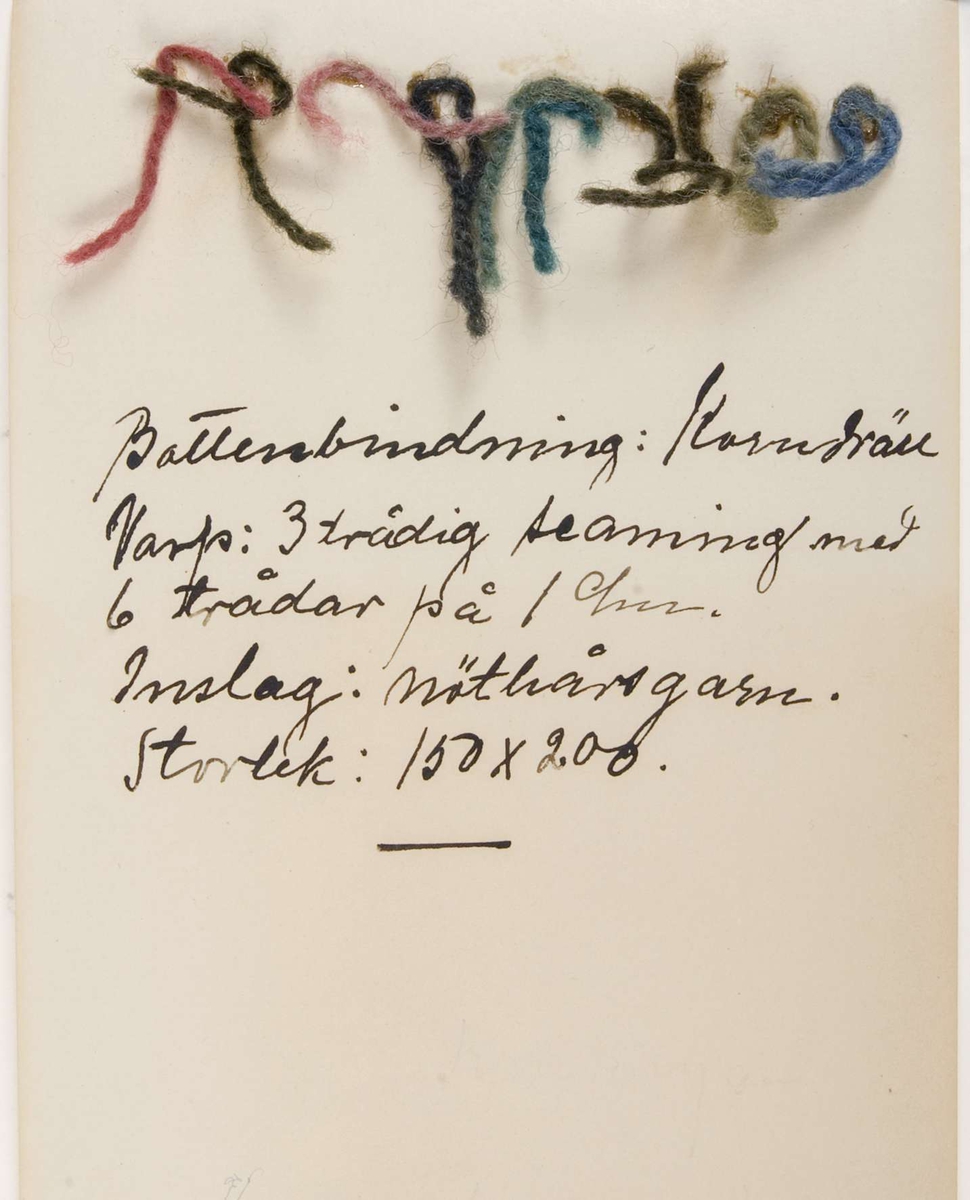 Bottenbindning: Korndräll
Varp: 3 trådig teaming med
6 trådar på 1 Chm.
Inslag: nöthårsgarn.
Storlek: 150 x 200.